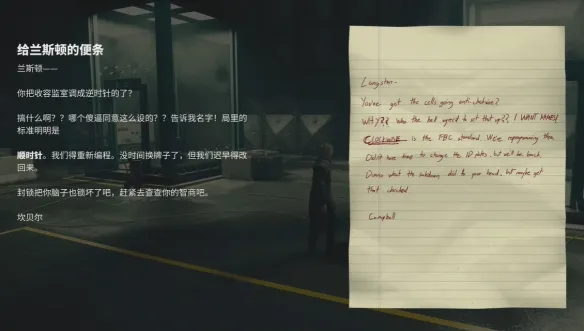 给兰斯顿的便条
兰斯顿——
你把收容监室调成逆时针的了?
搞什么啊?？哪个傻逼同意这么设的？？告诉我名字！局里的
标准明明是
顺时针。我们得重新编程。没时间换牌子了，但我们迟早得改
回来。
封锁把你脑子也锁坏了吧，赶紧去查查你的智商吧。
坎贝尔
Langston-
You've got the cells going anti-clockwise?
WHY?? Who the hell agreed to set that up??, I WANT NAMES
CLOCKWISE is the FBC standard. We're reprogramming them.
Didn't have time to change the ID plates, but we'll be back.
Dunno what the lockdown did to your head, but maybe get
that checked
Campbell